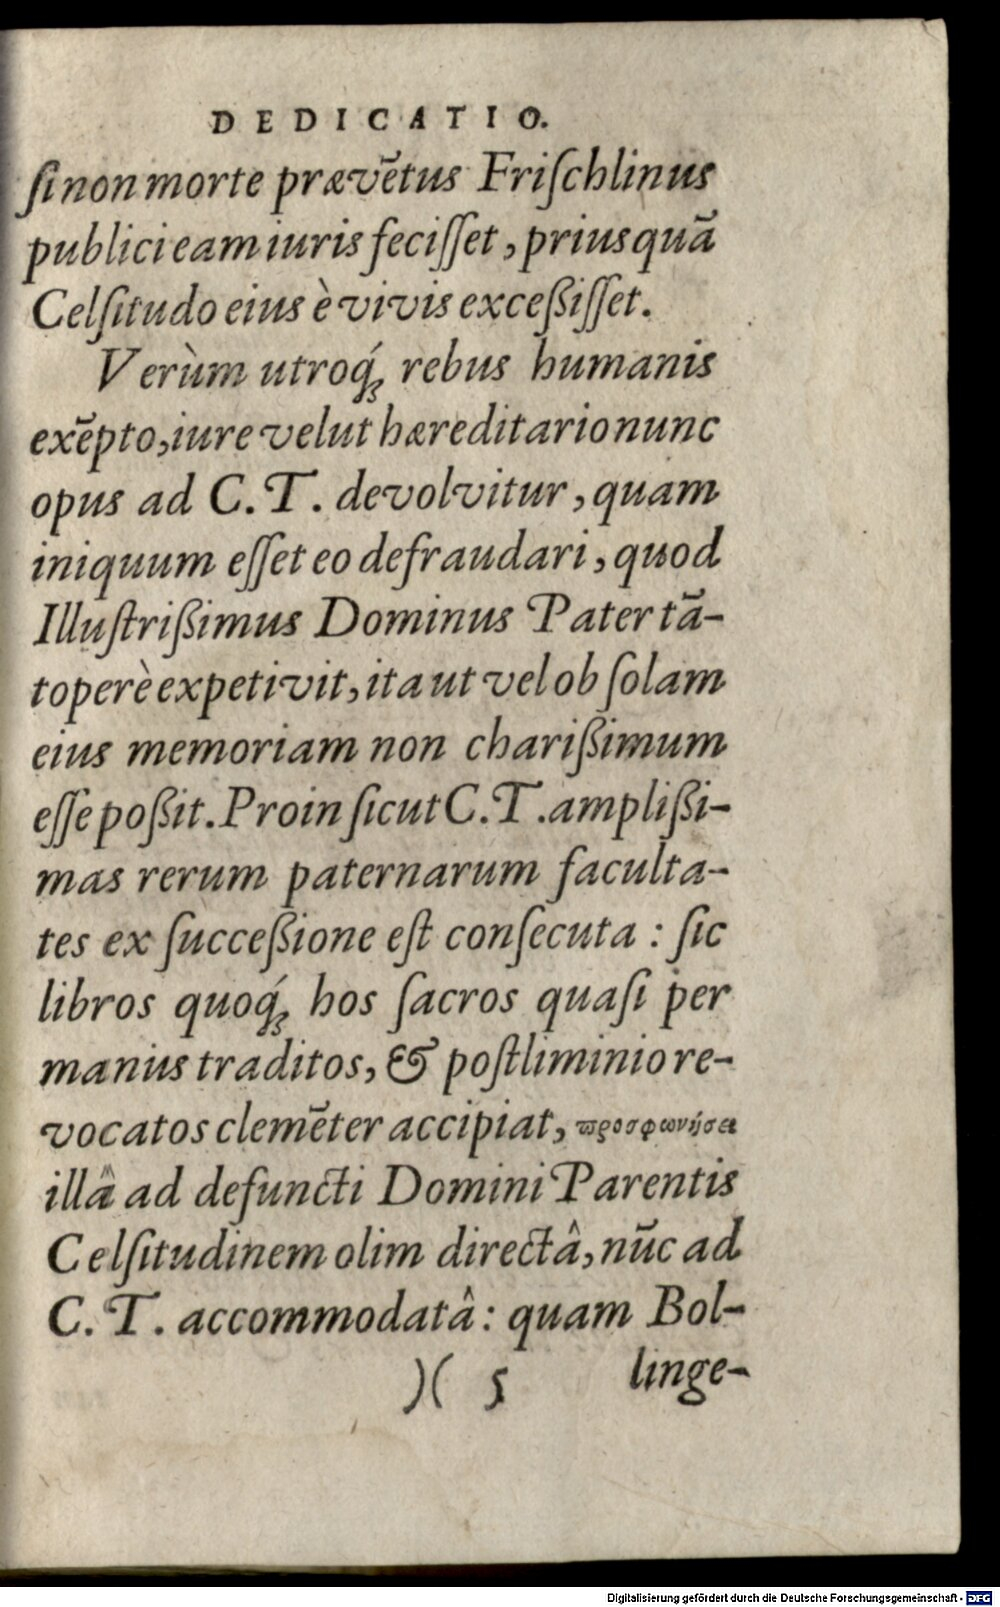 DEDICATIO.
ſi non morte prævētus Friſchlinus
publici eam iuris feciſſet, priusquā
Celſitudo eius è vivis exceßiſſet.
Verùm utroq́; rebus humanis
exēpto, iure velut hæreditario nunc
opus ad C. T. devolvitur, quam
iniquum eſſet eo defraudari, quod
Illuſtrißimus Dominus Pater tā-
toperè expetivit, ita ut vel ob ſolam
eius memoriam non charißimum
eſſe poßit. Proin ſicut C. T. amplißi-
mas rerum paternarum faculta-
tes ex ſucceßione eſt conſecuta : ſic
libros quoq́; hos ſacros quaſi per
manus traditos, & poſtliminio re-
vocatos clemēter accipiat, προσφωνήσει
illâ ad defuncti Domini Parentis
Celſitudinem olim directâ, nūc ad
C. T. accommodatâ : quam Bol-
)( 5 linge-
Digitalisierung gefördert durch die Deutsche Forschungsgemeinschaft - DFG